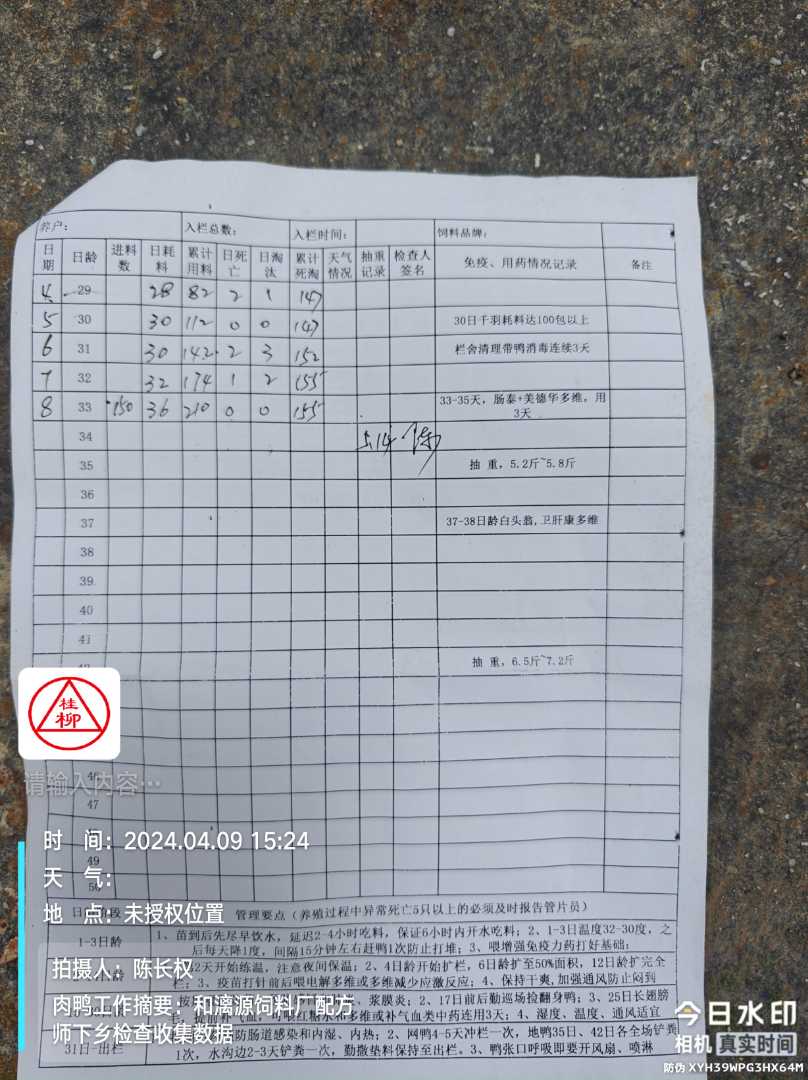 养户： 入栏总数： 入栏时间： 饲料品牌：
日期 日龄 进料数 日耗料 累计用料 日死亡 日淘汰 累计死淘 天气情况 抽重记录 检查人签名 免疫、用药情况记录 备注
4 29 28 82 2 1 147
5 30 30 112 0 0 147 30日千羽耗料达100包以上
6 31 30 142 2 3 152 栏舍清理带鸭消毒连续3天
7 32 32 174 1 2 155
8 33 150 36 210 0 0 155 33-35天，肠泰+美德华多维，用3天
34 5.14 陈
35 抽 重，5.2斤~5.8斤
36
37 37-38日龄白头翁,卫肝康多维
38
39
40
41
抽 重，6.5斤~7.2斤
桂
柳
请输入内容…
46
47
时 间：2024.04.09 15:24
49
天 气：
50
地 点：未授权位置
管理要点（养殖过程中异常死亡5只以上的必须及时报告管片员）
1-3日龄 1、苗到后先尽早饮水，延迟2-4小时吃料，保证6小时内开水吃料；2、1-3日温度32-30度，之
后每天降1度，间隔15分钟左右赶鸭1次防止打堆；3、喂增强免疫力药打好基础；
拍摄人：陈长权
2天开始练温，注意夜间保温；2、4日龄开始扩栏，6日龄扩至50%面积，12日龄扩完全
栏；3、疫苗打针前后喂电解多维或多维减少应激反应；4、保持干爽,加强通风防止闷到
肉鸭工作摘要：和漓源饲料厂配方
师下乡检查收集数据
浆膜炎；2、17日前后勤巡场捡翻身鸭；3、25日长翅膀
多维或补气血类中药连用3天；4、湿度、温度、通风适宜
31日-出栏 防肠道感染和内湿、内热；2、网鸭4-5天冲栏一次，地鸭35日、42日各全场铲粪
1次，水沟边2-3天铲粪一次，勤撒垫料保持至出栏。3、鸭张口呼吸即要开风扇、喷淋
今日水印
相机 真实时间
防伪 XYH39WPG3HX64M